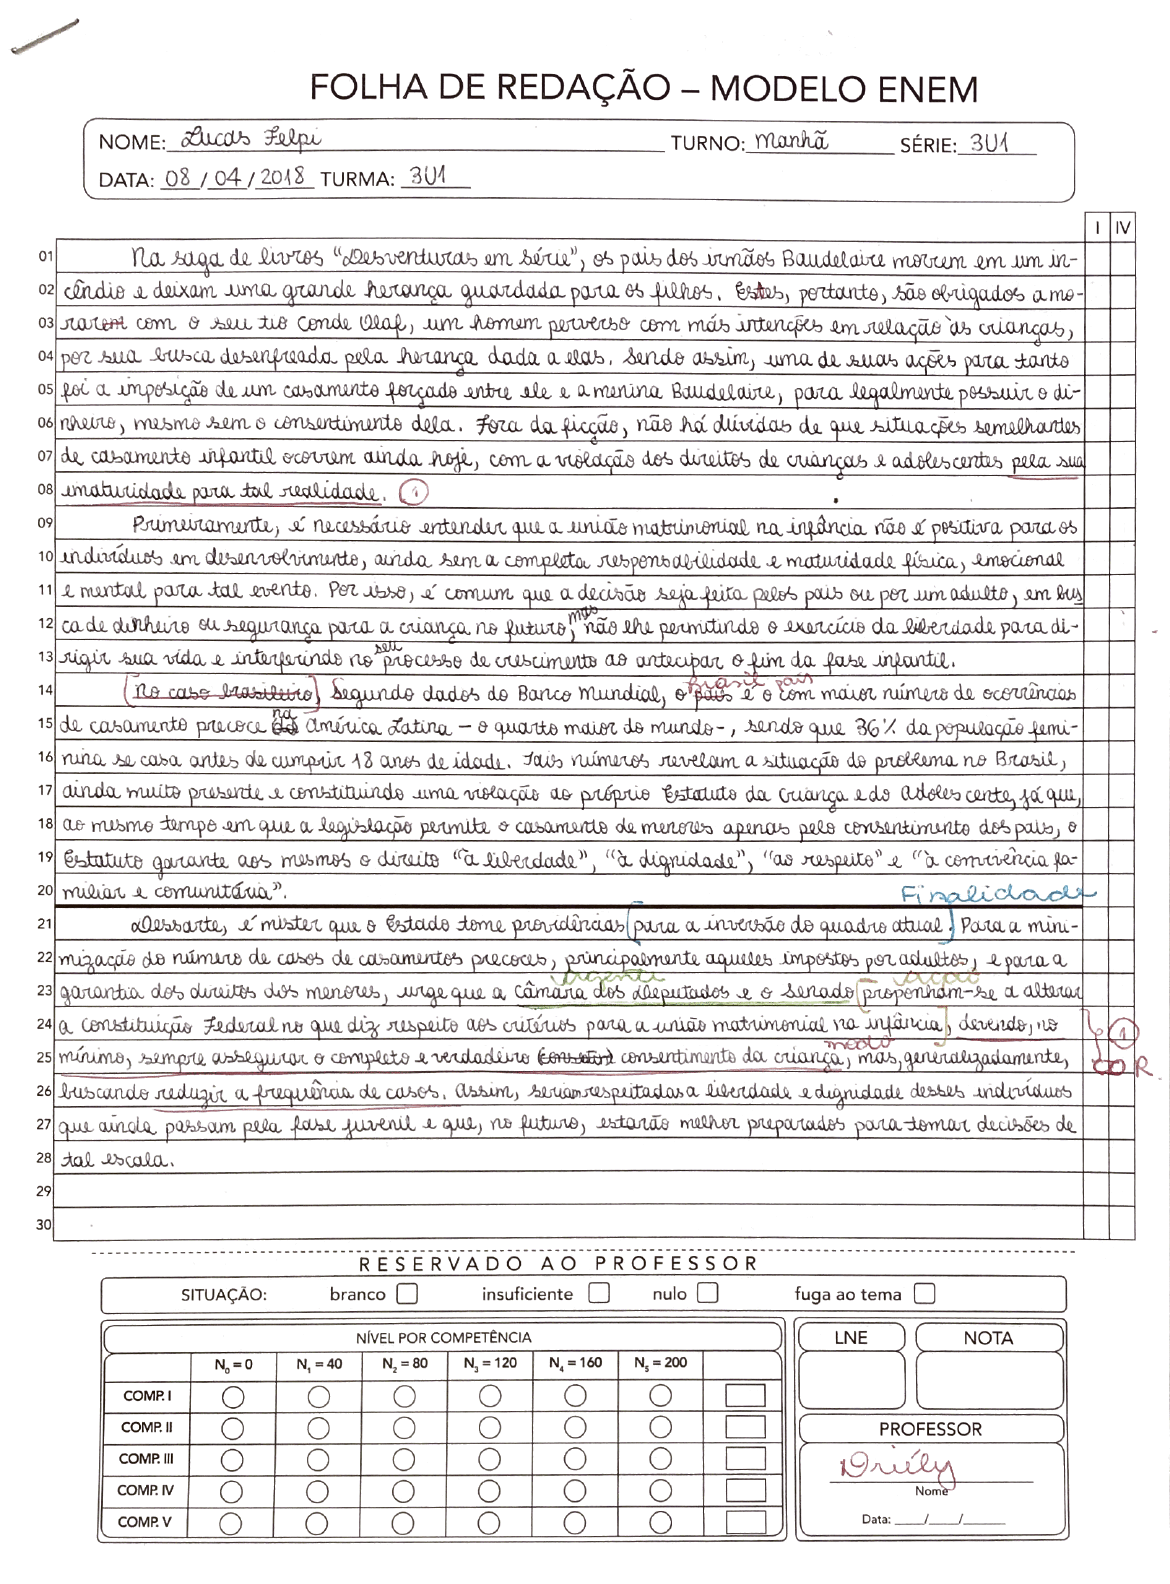 FOLHA DE REDAÇÃO – MODELO ENEM
NOME: Lucas Felpi TURNO: Manhã SÉRIE: 3U1
DATA: 08/04/2018 TURMA: 3U1
I IV
01 Na saga de livros "Desventuras em série", os pais dos irmãos Baudelaire morrem em um in-
02 cêndio e deixam uma grande herança guardada para os filhos. Estes, portanto, são obrigados a mo-
03 rarem com o seu tio Conde Olaf, um homem perverso com más intenções em relação às crianças,
04 por sua busca desenfreada pela herança dada a elas. Sendo assim, uma de suas ações para tanto
05 foi a imposição de um casamento forçado entre ele e a menina Baudelaire, para legalmente possuir o di-
06 nheiro, mesmo sem o consentimento dela. Fora da ficção, não há dúvidas de que situações semelhantes
07 de casamento infantil ocorrem ainda hoje, com a violação dos direitos de crianças e adolescentes pela sua
08 imaturidade para tal realidade. 1
09 Primeiramente, é necessário entender que a união matrimonial na infância não é positiva para os
10 indivíduos em desenvolvimento, ainda sem a completa responsabilidade e maturidade física, emocional
11 e mental para tal evento. Por isso, é comum que a decisão seja feita pelos pais ou por um adulto, em bus
12 ca de dinheiro ou segurança para a criança no futuro, mas não lhe permitindo o exercício da liberdade para di-
13 rigir sua vida e interferindo no seu processo de crescimento ao antecipar o fim da fase infantil.
14 [No caso brasileiro] Segundo dados do Banco Mundial, o país Brasil é o país com maior número de ocorrências
15 de casamento precoce da na América Latina – o quarto maior do mundo –, sendo que 36% da população femi-
16 nina se casa antes de cumprir 18 anos de idade. Tais números revelam a situação do problema no Brasil,
17 ainda muito presente e constituindo uma violação ao próprio Estatuto da Criança e do Adolescente, já que,
18 ao mesmo tempo em que a legislação permite o casamento de menores apenas pelo consentimento dos pais, o
19 Estatuto garante aos mesmos o direito "à liberdade", "à dignidade", "ao respeito" e "à convivência fa-
20 miliar e comunitária". Finalidade
21 Dessarte, é mister que o Estado tome providências [para a inversão do quadro atual.] Para a mini-
22 mização do número de casos de casamentos precoces, principalmente aqueles impostos por adultos, e para a
agente ação
23 garantia dos direitos dos menores, urge que a Câmara dos Deputados e o Senado [proponham-se a alterar
24 a constituição Federal no que diz respeito aos critérios para a união matrimonial na infância], devendo, no 1
modo
25 mínimo, sempre assegurar o completo e verdadeiro consentimento da criança, mas, generalizadamente, COR.
26 buscando reduzir a frequência de casos. Assim, seriam respeitadas a liberdade e dignidade desses indivíduos
27 que ainda passam pela fase juvenil e que, no futuro, estarão melhor preparados para tomar decisões de
28 tal escala.
29
30
RESERVADO AO PROFESSOR
SITUAÇÃO: branco insuficiente nulo fuga ao tema
NÍVEL POR COMPETÊNCIA
N0 = 0 N1 = 40 N2 = 80 N3 = 120 N4 = 160 N5 = 200
COMP. I
COMP. II
COMP. III
COMP. IV
COMP. V
LNE NOTA
PROFESSOR
Driély
Nome
Data: ___/___/___